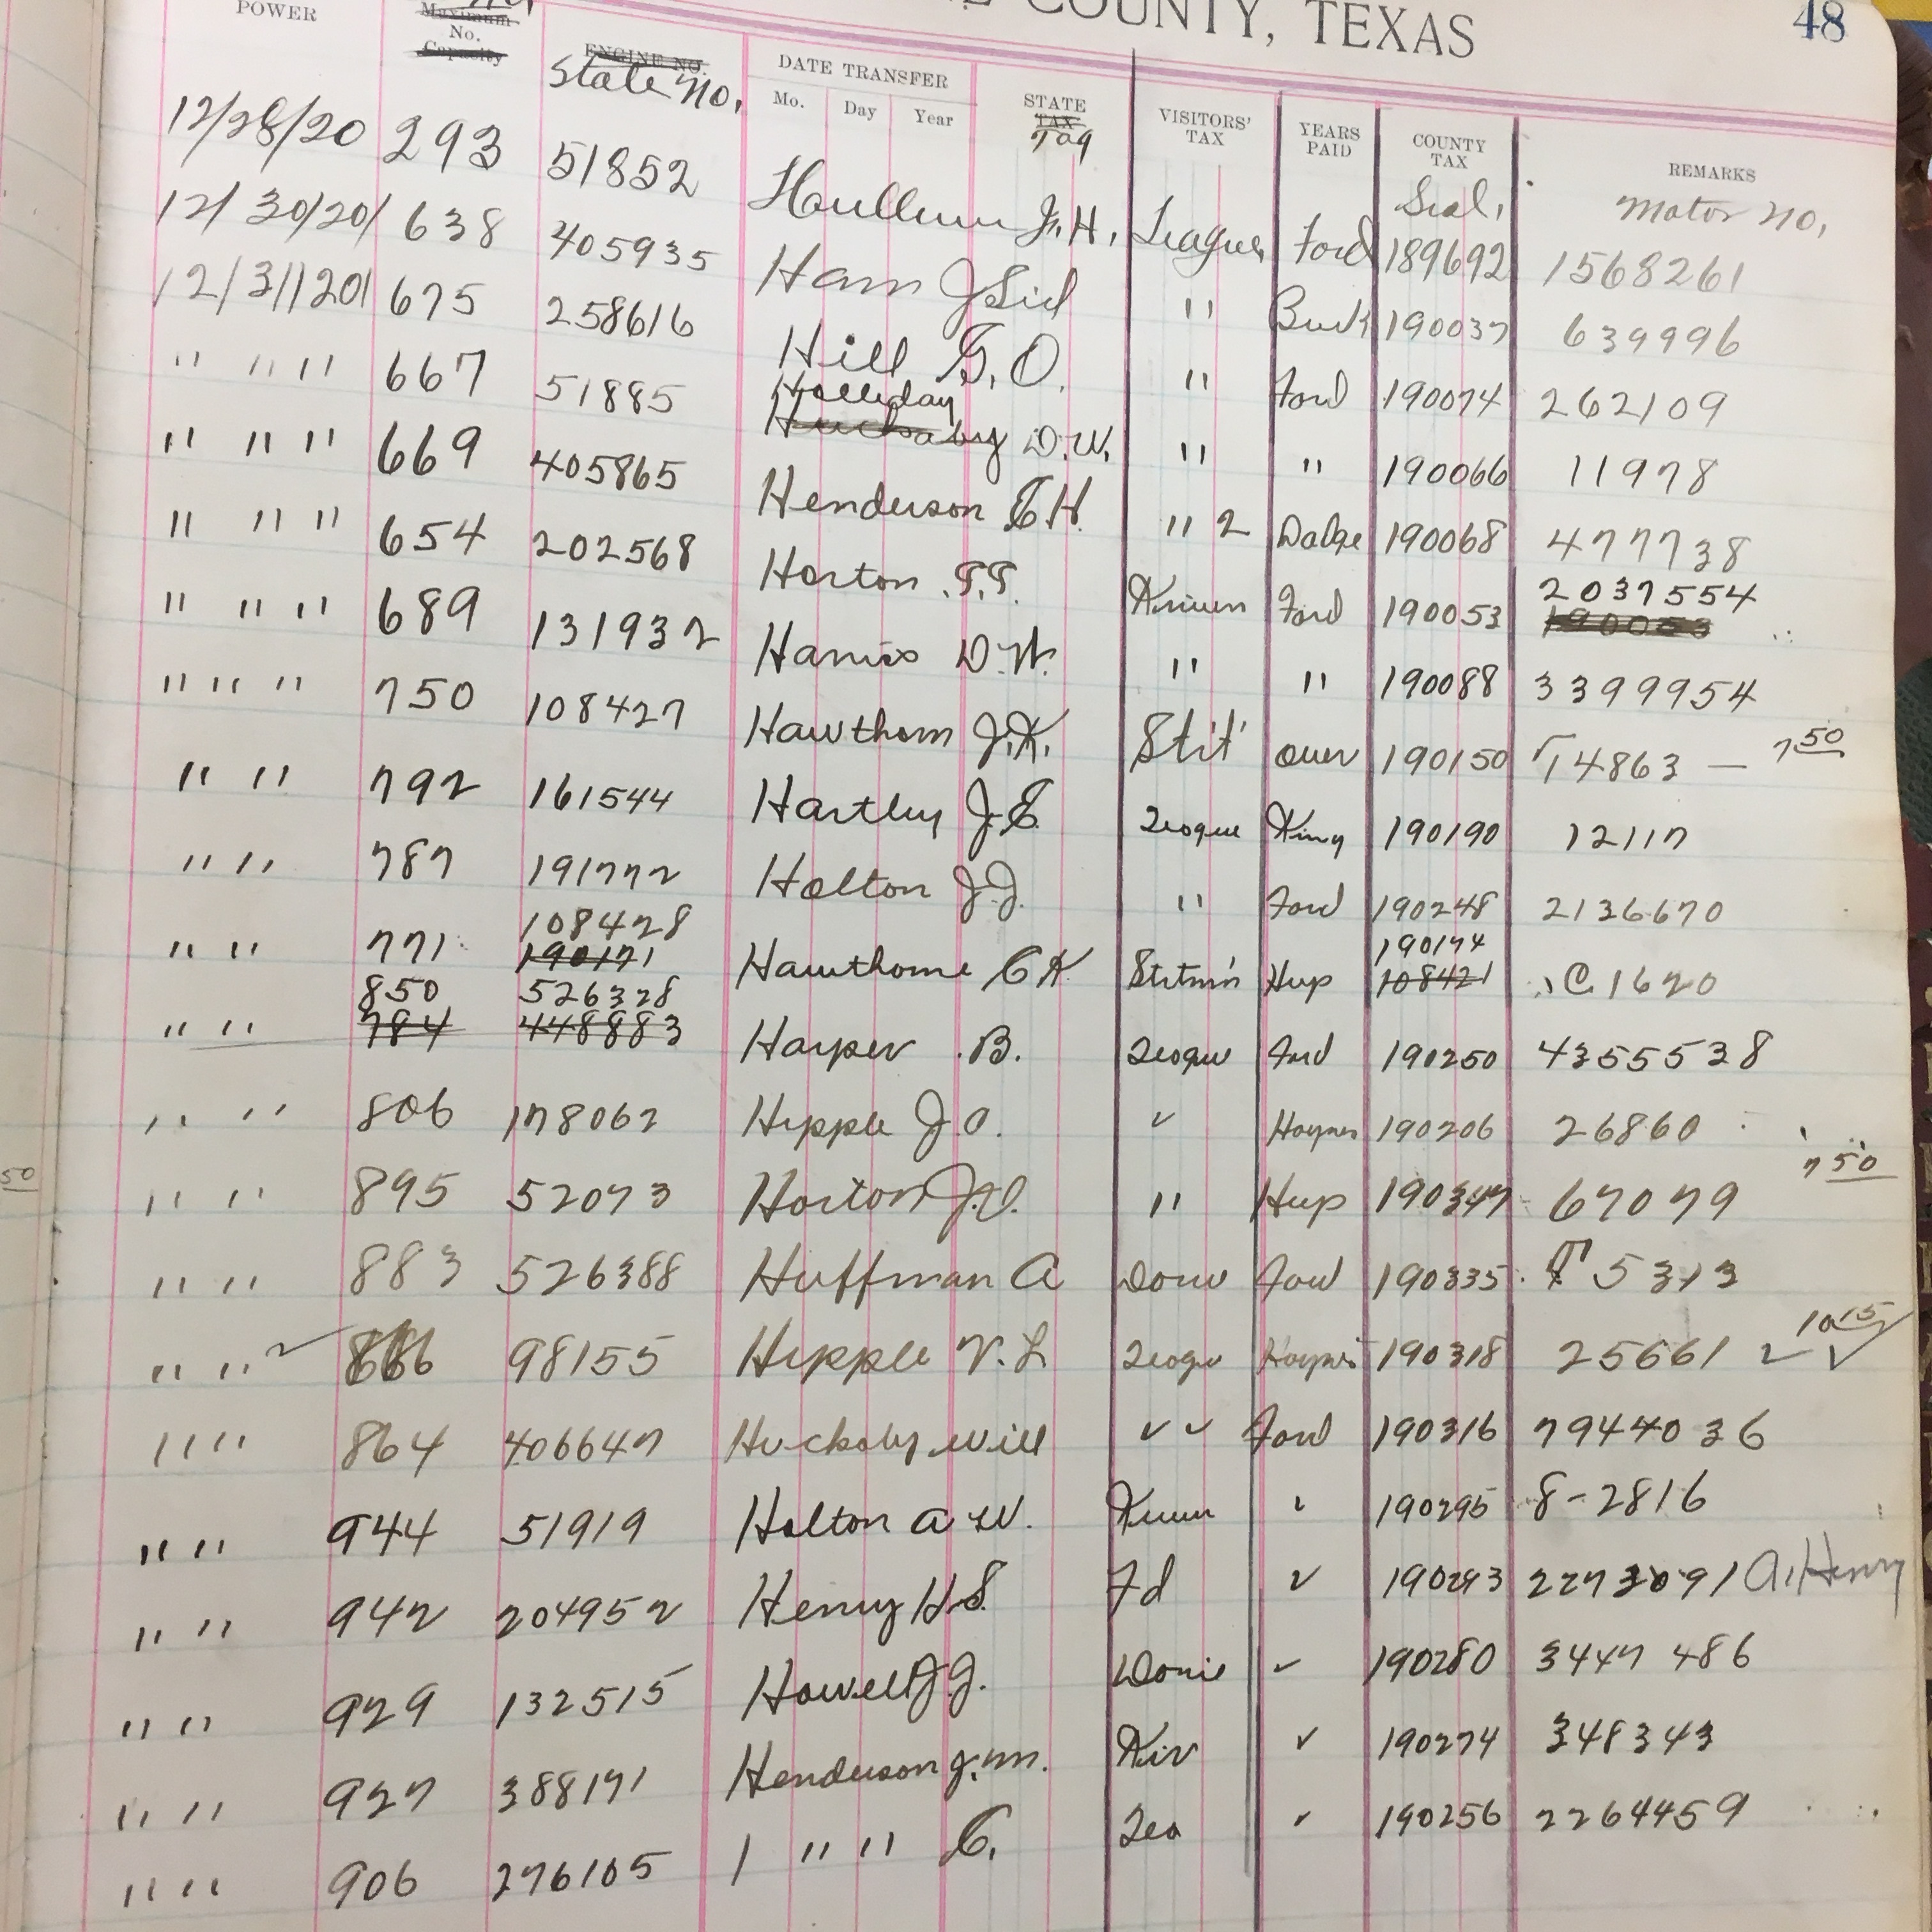 E COUNTY, TEXAS 48
POWER Maximum No. Capacity ENGINE NO. State No. DATE TRANSFER Mo. Day Year STATE TAX Tag VISITORS' TAX YEARS PAID COUNTY TAX Seal, REMARKS Motor No,
12/28/20 293 51852 Hullum J.H, Teague Ford 189692 1568261
12/30/20 638 405935 Ham J Sid " Buick 190037 639996
12/31/20 675 258616 Hill G.O. " Ford 190074 262109
" " " 667 51885 Holliday Huckaby D.W. " " 190066 11978
" " " 669 405865 Henderson E H. " 2 Dodge 190068 477738
" " " 654 202568 Horton T.T. Kirven Ford 190053 2037554 190053
" " " 689 131932 Harris D.W. " " 190088 3399954
" " " 750 108427 Hawthorn J.K. Strt' Over 190150 14863 — 7 50
" " 792 161544 Hartley J.E. Teague King 190190 12117
" " 787 191772 Holton J.J. " Ford 190248 2136670
" " 771 108428 190171 Hawthorne C K Strtm'n Hup 190174 108421 C1620
" " 850 784 526328 448883 Harper B. Teague Ford 190250 4355538
" " 806 178062 Hipple J.O. " Haynes 190206 26860
50 " " 895 52073 Horton J.O. " Hup 190347 67079 7 50
" " 883 526388 Huffman A Donie Ford 190335 T 5313
" " ✓ 866 98155 Hipple V.L Teague Haynes 190318 25661 ✓ ✓ 10 15
" " 864 406647 Huckaby Will " " Ford 190316 7944036
" " 944 51919 Holton A W. Kirven " 190295 8-2816
" " 942 204952 Henry H.S. Fd " 190293 2273091 A. Henry
" " 929 132515 Howell J.J. Donie " 190280 3447486
" " 927 388171 Henderson J.M. Kir " 190274 348343
" " 906 276105 " " " C. Tea " 190256 2264459